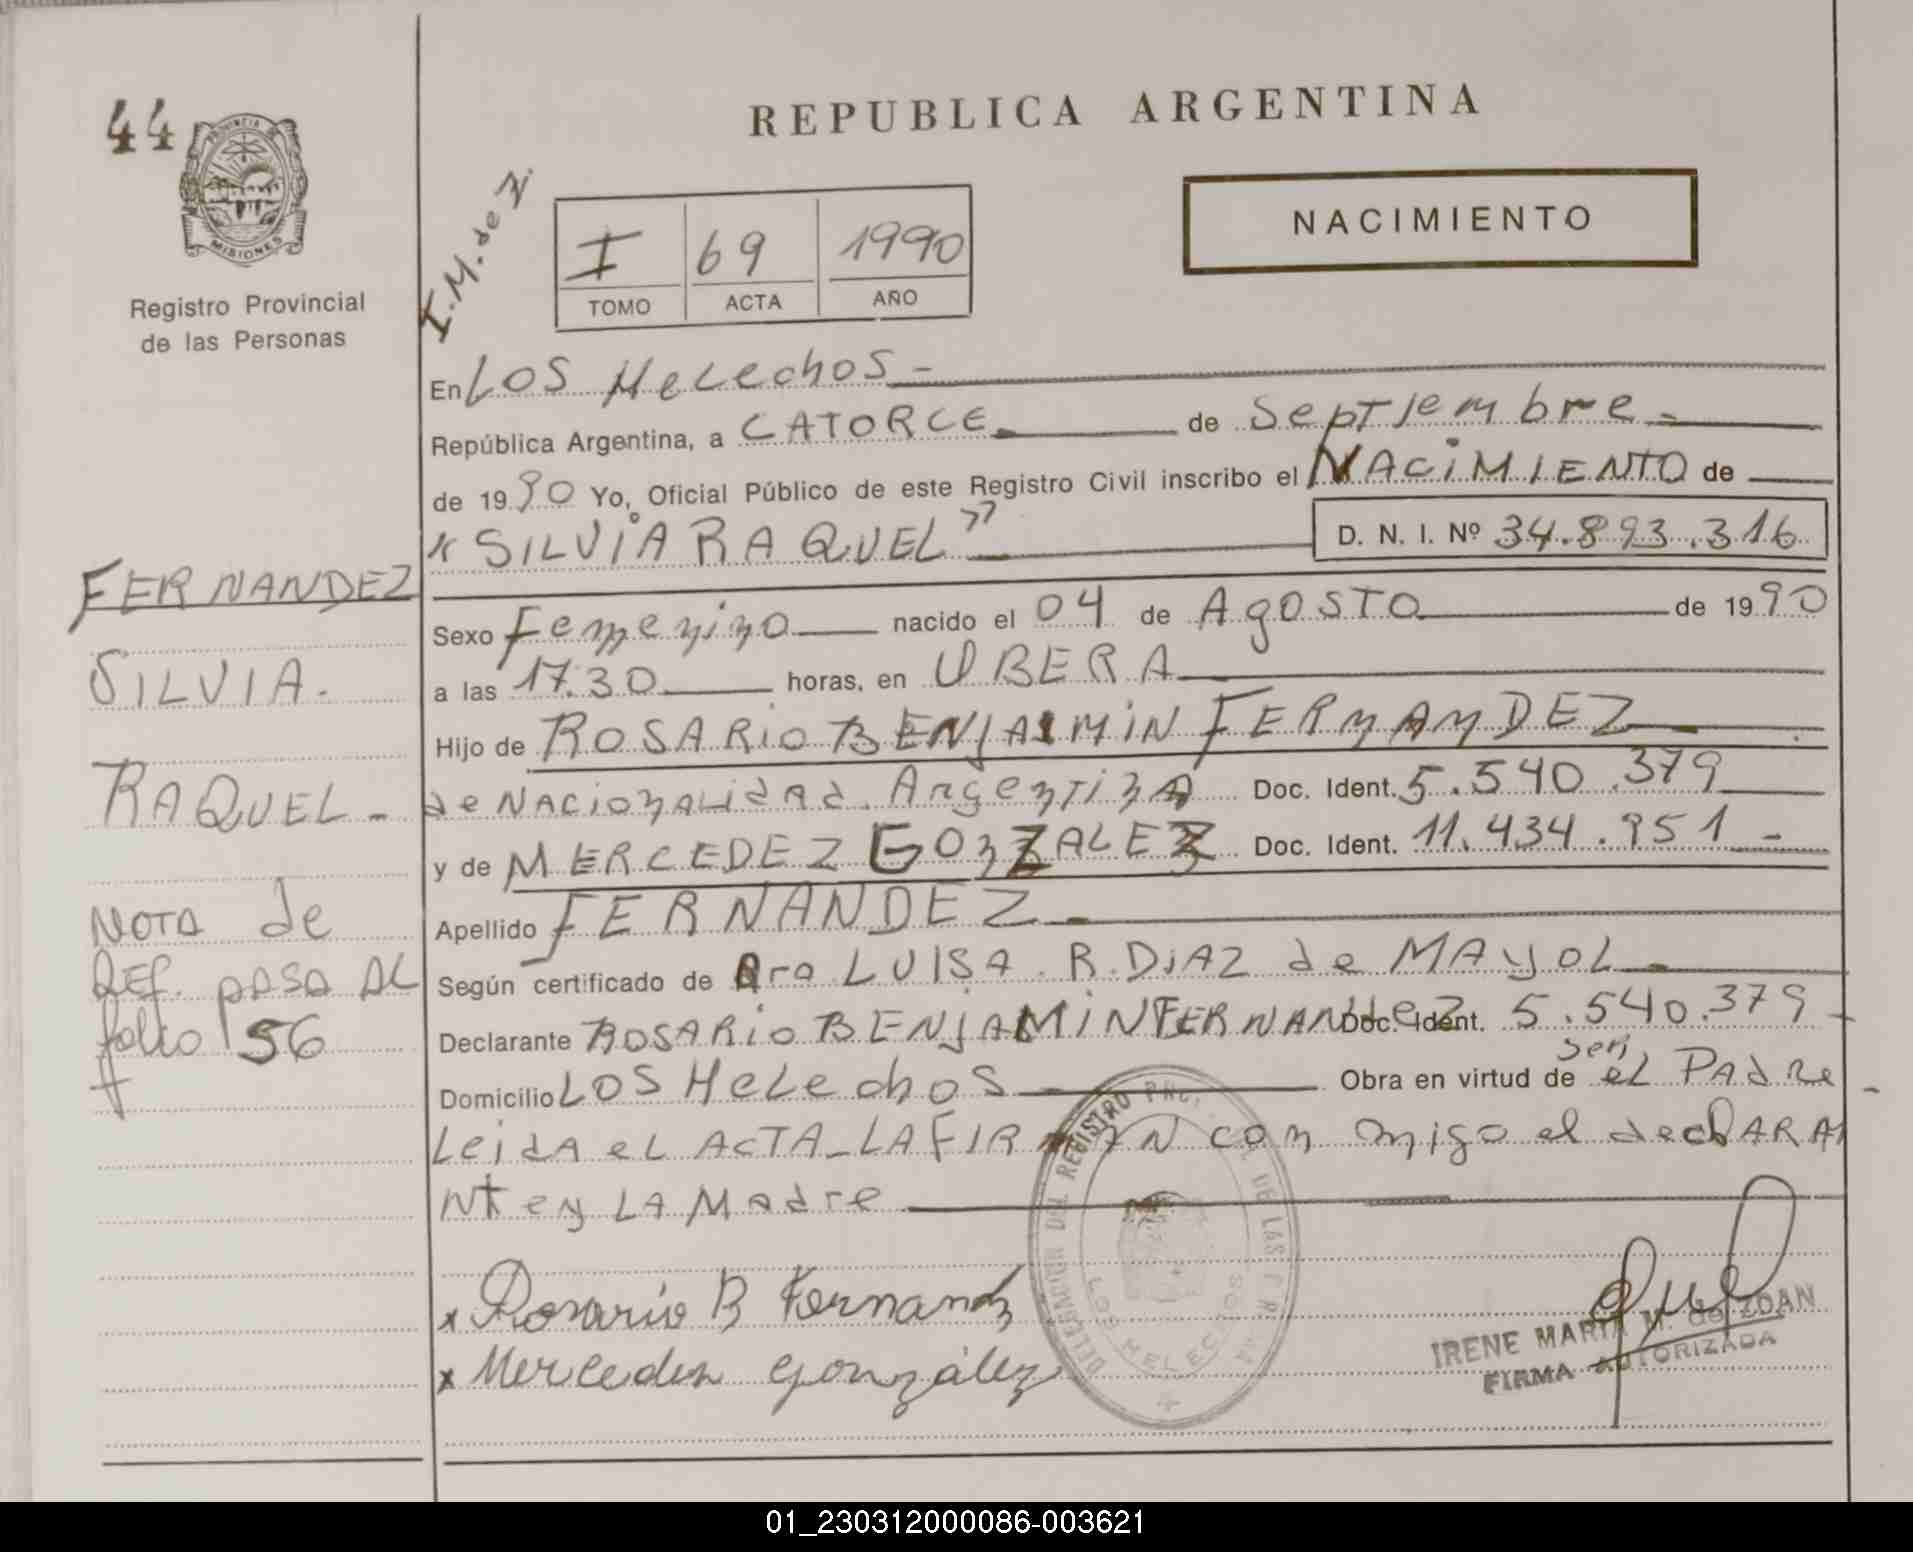 44
PROVINCIA DE
MISIONES
Registro Provincial
de las Personas
REPUBLICA ARGENTINA
NACIMIENTO
I.M. de Z.
I 69 1990
TOMO ACTA AÑO
En LOS HeLechos -
República Argentina, a CATORCE de Septiembre -
de 1990 Yo, Oficial Público de este Registro Civil inscribo el NACIMIENTO de
"SILVIA RAQUEL" D. N. I. Nº 34.893.316
Sexo Femenino nacido el 04 de AgOSTO de 1990
a las 17.30 horas, en OBERA
Hijo de ROSARIO BENJAMIN FERNANDEZ
de NACionALidad Argentina Doc. Ident. 5.540.379
y de MERCEDEZ GONZALEZ Doc. Ident. 11.434.951 -
Apellido FERNANDEZ -
Según certificado de Dra LUISA R. DIAZ de MAYOL -
Declarante ROSARIO BENJAMIN FERNANdeZ Doc. Ident. 5.540.379 -
Domicilio LOS HeLechos - Obra en virtud de ser eL PAdRe -
Leida eL ACTA LA FIRMAN con migo el decLARA
Nte y LA Madre
FERNANDEZ
SILVIA.
RAQUEL -
NOTA de
REF. PASA AL
folio 56
Rosario B Fernandz
Mercedez González
DELEGACION DEL REGISTRO DE LAS
LOS HELECHOS
IRENE MARIA M. de ZDAN
FIRMA AUTORIZADA
01_230312000086-003621